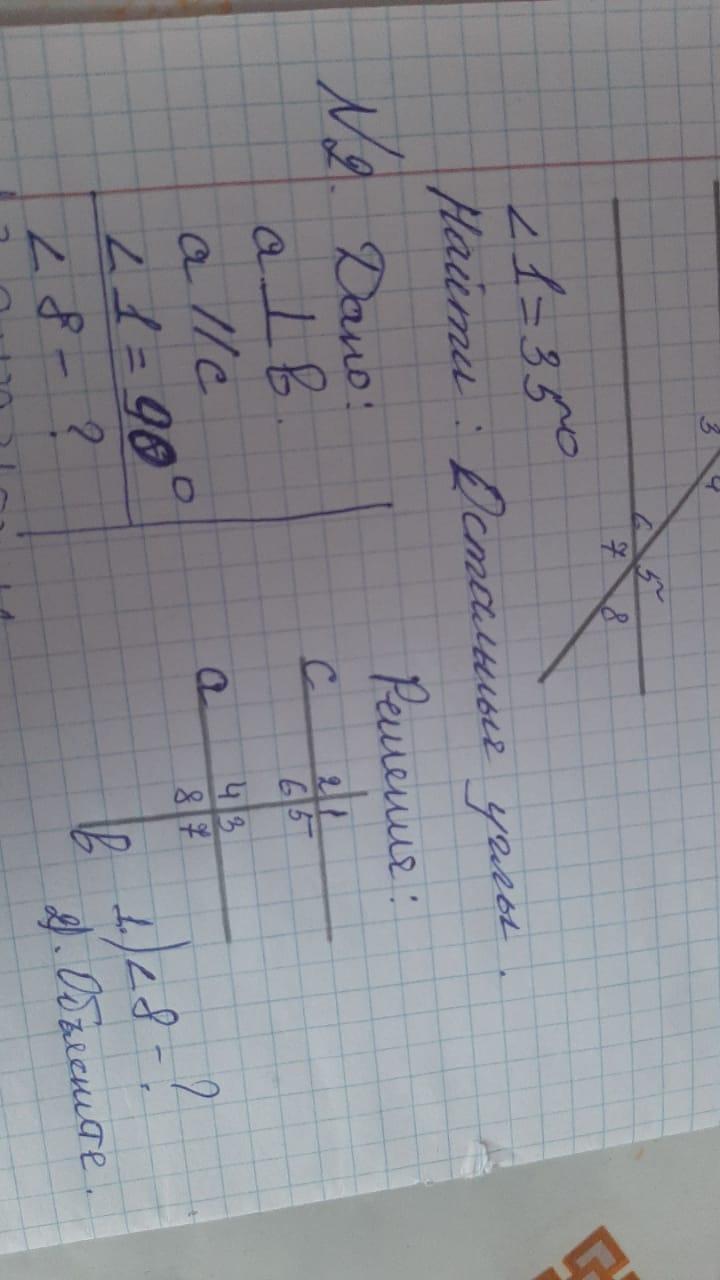 3
4
6 5
7 8
∠1 = 35°
Найти: Остальные углы.
№2. Дано:
a ⊥ b.
a || c
∠1 = 90°
∠8 - ?
Решения:
c 2 1
6 5
a 4 3
8 7
b
1.) ∠8 - ?
2). Объясните.